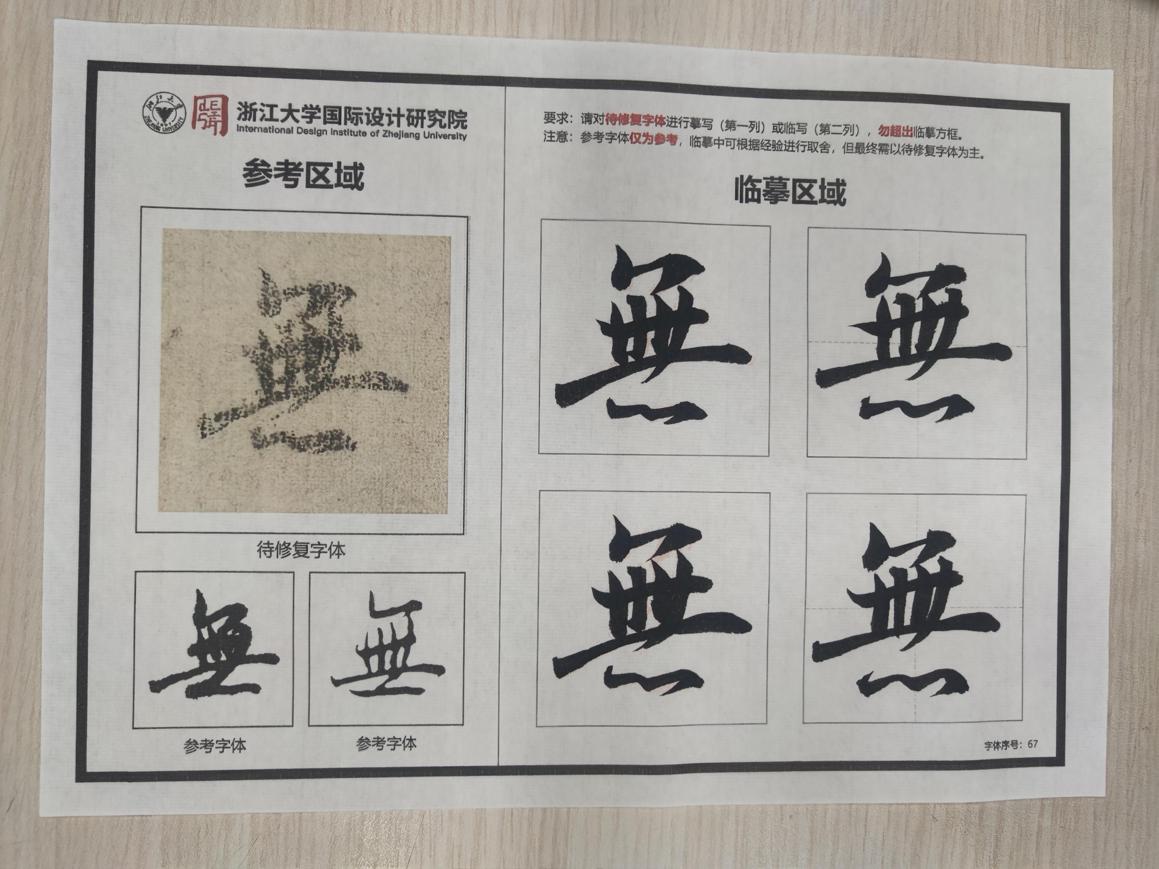 浙江大学国际设计研究院
International Design Institute of Zhejiang University
参考区域
無
待修复字体
無 無
参考字体 参考字体
要求：请对待修复字体进行摹写（第一列）或临写（第二列），勿超出临摹方框。
注意：参考字体仅为参考，临摹中可根据经验进行取舍，但最终需以待修复字体为主。
临摹区域
無 無
無 無
字体序号：67